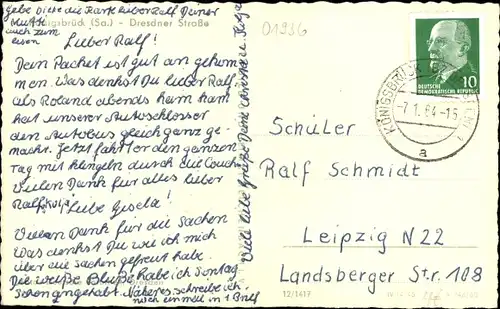 gebe bitte die Karte lieber Ralf Deiner
Mutti
auch zum
lesen
Königsbrück (Sa.) - Dresdner Straße
Lieber Ralf!
Dein Packet ist gut an gekom
men. Was denkst Du lieber Ralf
als Roland abends ham kam
hat unserer Autoschlosser
den Autobus gleich ganz ge-
macht. Jetzt fährt er den ganzen
Tag mit klingeln durch die Couch
Vielen Dank für alles lieber
Ralf. Liebe Gisela!
Vielen Dank für die Sachen
Was denkst Du wie ich mich
über die Sachen gefreut habe.
Die weiße Bluße habe ich Sontag
schon angehabt. Näheres schreibe ich
noch einmal in 1 Brief
Viele liebe Grüße Deine Christa u. Katja
01936
KÖNIGSBRÜCK
-7.1.64-15
a
DEUTSCHE
DEMOKRATISCHE REPUBLIK
10
Schüler
Ralf Schmidt
Leipzig N 22
Landsberger Str. 108
12/1417